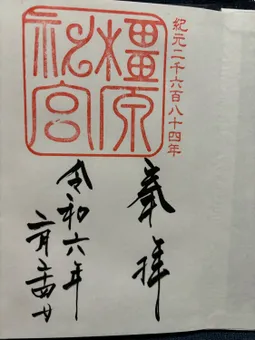 紀元二千六百八十四年
橿原
神宮
奉拝
令和六年